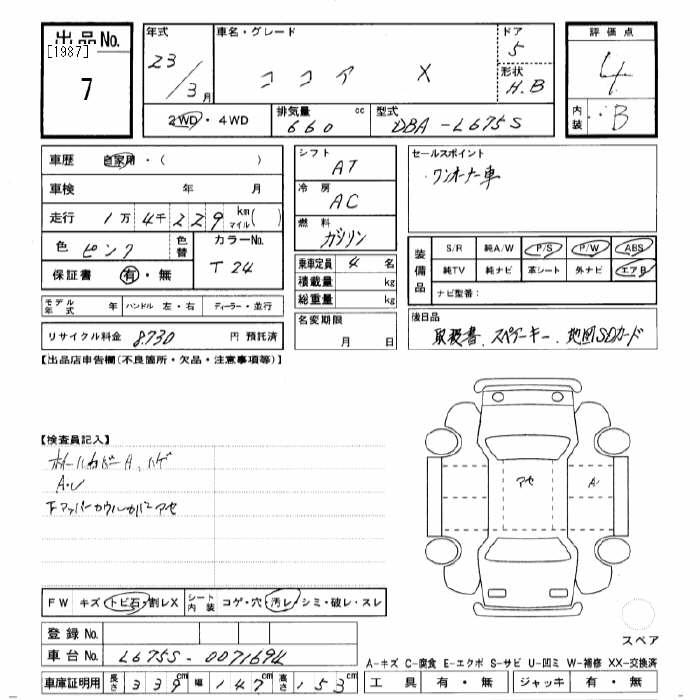 出品No.
[1987]
7
年式
23/3月
車名・グレード
ココア X
ドア
5
形状
H.B
評価点
4
内装
B
2WD・4WD
排気量
660 cc
型式
DBA-L675S
車歴 自家用・( )
車検 年 月
走行 1万4千229 km マイル( )
色 ピンク
色替
カラーNo.
T24
保証書 有・無
シフト
AT
冷房
AC
燃料
ガソリン
乗車定員 4 名
積載量 kg
総重量 kg
セールスポイント
ワンオーナー車
装備品
S/R 純A/W P/S P/W ABS
純TV 純ナビ 革シート 外ナビ エアB
ナビ型番:
モデル年式 年 ハンドル 左・右 ディーラー・並行
リサイクル料金 8.730 円 預託済
名変期限
月 日
後日品
取扱書、スペアーキー、地図SDカード
【出品店申告欄(不良箇所・欠品・注意事項等)】
【検査員記入】
ホイールカバーA、ハゲ
A・U
アセ
アセ
A
FW キズ・トビ石・割レX
シート内装 コゲ・穴・汚レ・シミ・破レ・スレ
登録No.
車台No. L675S-0071694
車庫証明用 長さ 339cm 幅 147cm 高さ 153cm
スペア
A-キズ C-腐食 E-エクボ S-サビ U-凹ミ W-補修 XX-交換済
工具 有・無 ジャッキ 有・無